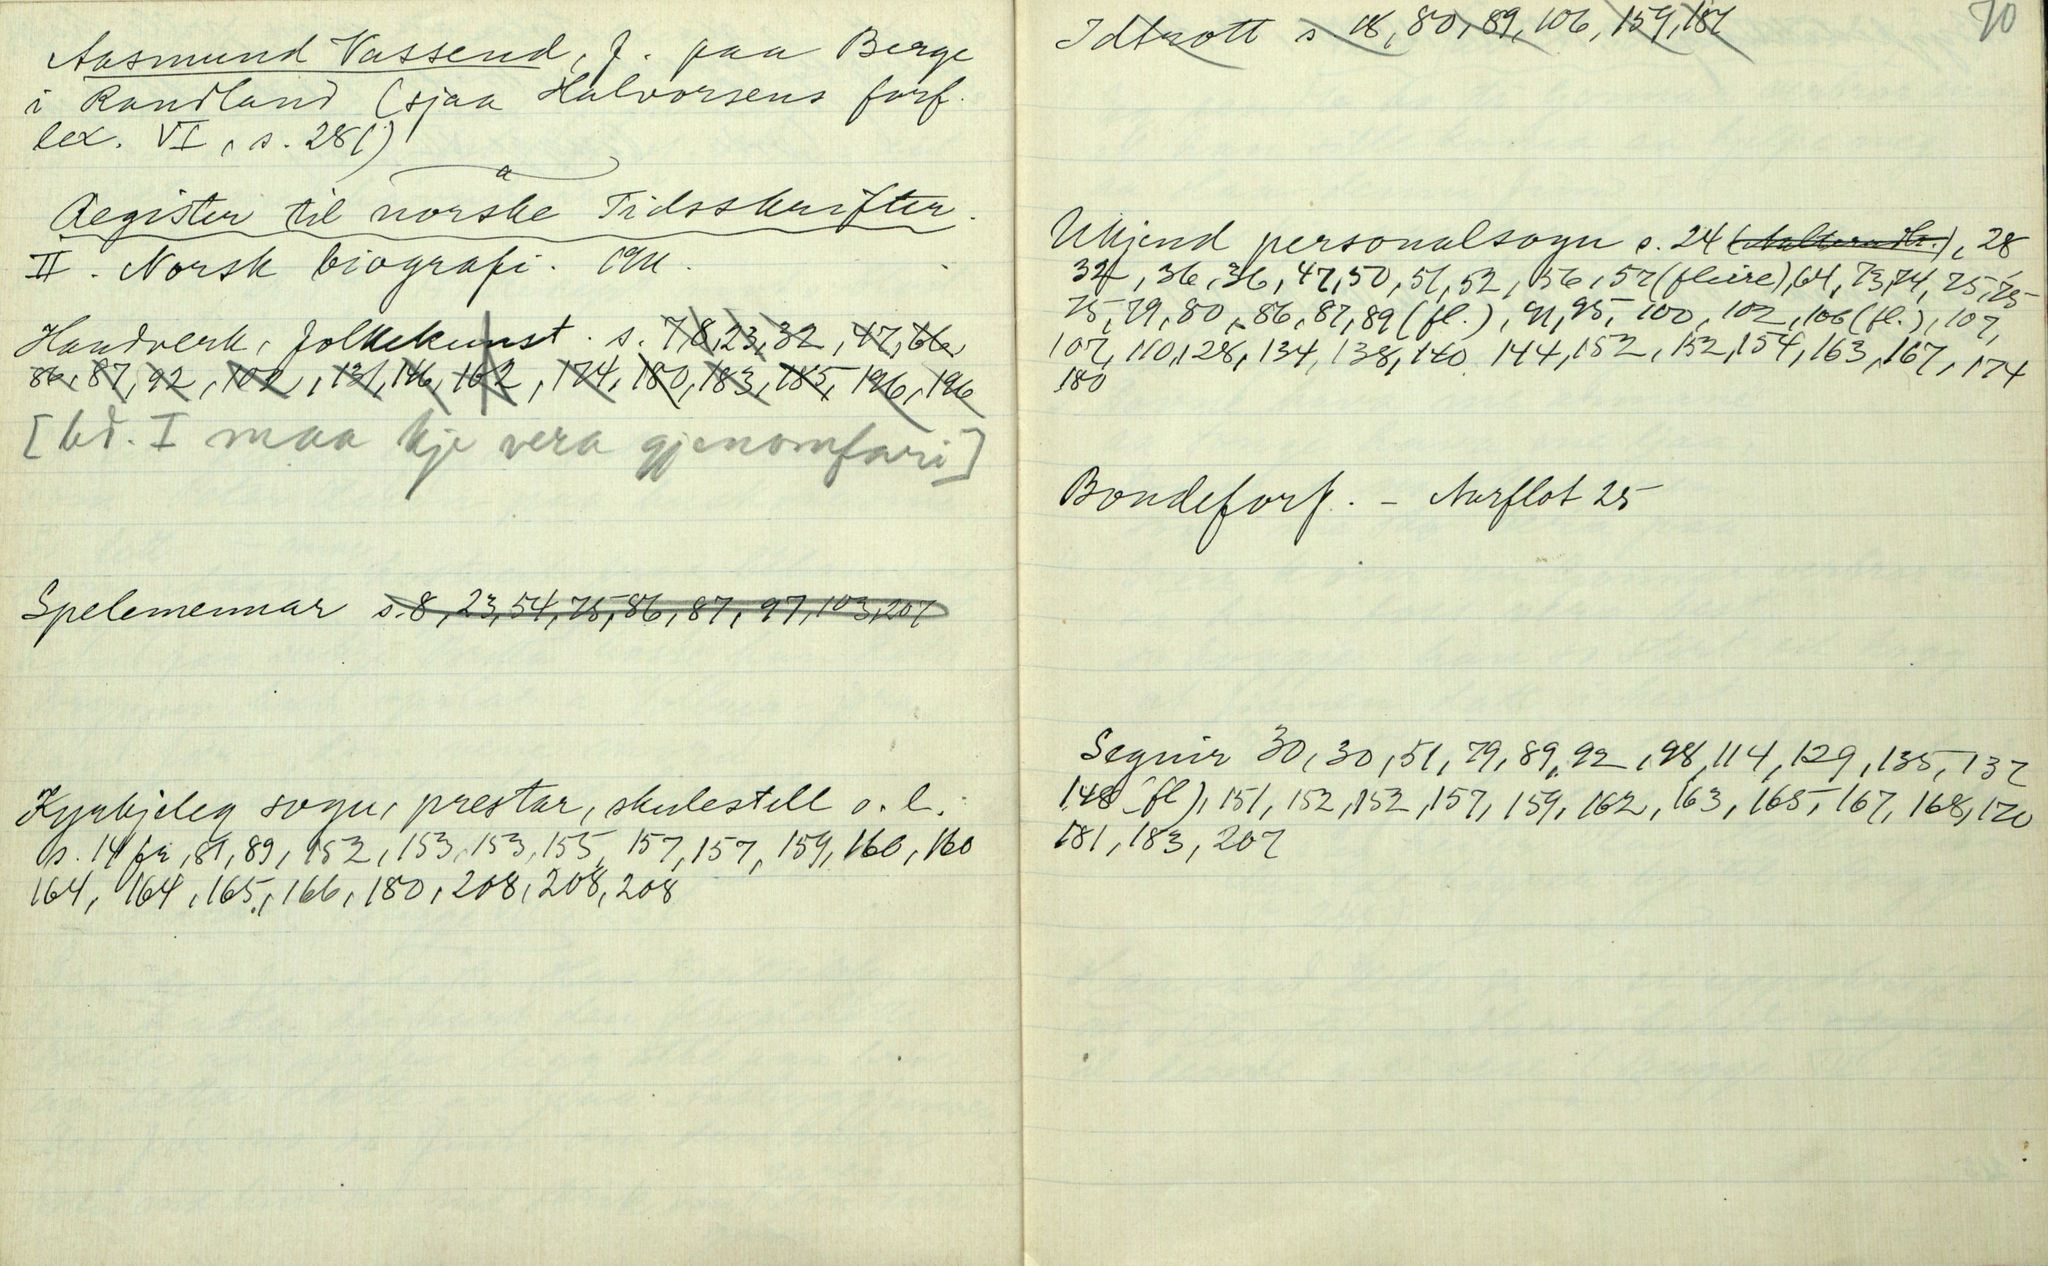 Aasmund Vassend, f. paa Berge
i Randland (sjaa Halvorsens forf.
lex. VI, s. 281)
a
Register til norske Tidsskrifter.
II. Norsk biografi. 1911.
Handverk, folkekunst. s. 7, 8, 23, 32, 47, 66,
86, 87, 92, 102, 131, 146, 162, 174, 180, 183, 185, 196, 196
[bd. I maa kje vera gjenomfari]
Spelemennar s. 8, 23, 54, 75, 86, 87, 97, 103, 207
Kyrkjeleg sogu, prestar, skulestell o. l.
s. 14 81, 89, 152, 153, 153, 155, 157, 157, 159, 160, 160
164, 164, 165, 166, 180, 208, 208, 208
70
Idtrott s. 18, 80, 89, 106, 159, 187
Ukjend personalsogu s. 24 , 28
32, 36, 36, 47, 50, 51, 52, 56, 57 (fleire), 64, 73, 74, 75, 75
75, 79, 80, 86, 87, 89 (fl.), 91, 95, 100, 102, 106 (fl.), 107,
107, 110, 128, 134, 138, 140, 144, 152, 152, 154, 163, 167, 174
180
Bondeforf. - Aarflot 25
Segnir 30, 30, 51, 79, 89, 92, 98, 114, 129, 135, 137
148 (fl), 151, 152, 152, 157, 159, 162, 163, 165, 167, 168, 170
181, 183, 207